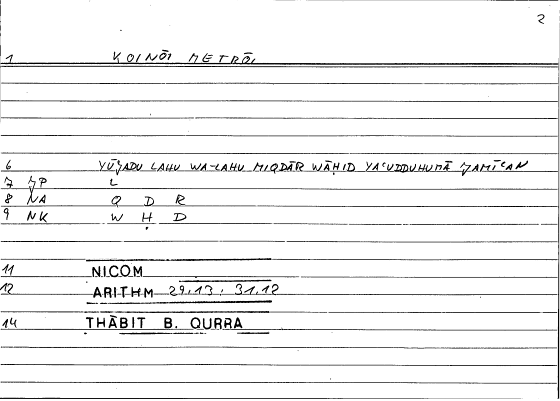 2
1 KOINŌI METRŌI
6 YŪǦADU LAHU WA-LAHU MIQDĀR WĀḤID YAʿUDDUHUMĀ ǦAMĪʿAN
7 ǦP L
8 NA Q D R
9 NK W Ḥ D
11 NICOM
12 ARITHM 29.13 ; 31.12
14 THĀBIT B. QURRA